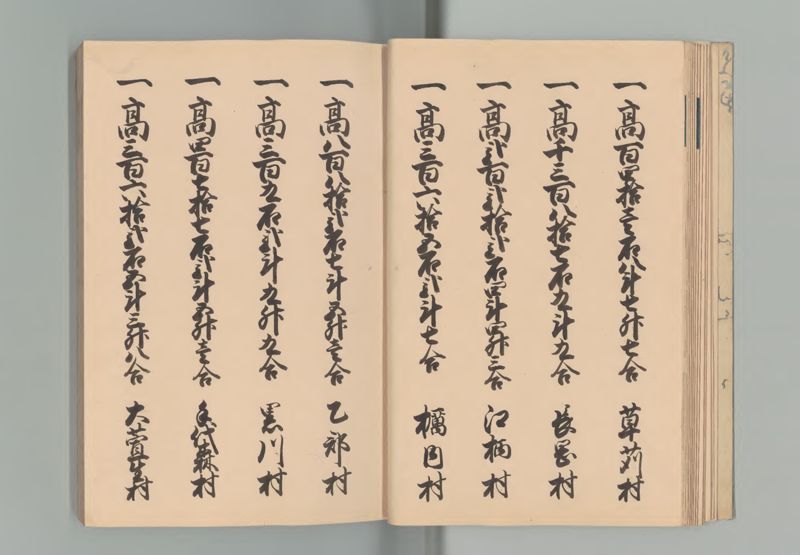 一高百四拾壱石八斗七升七合 草苅村
一高千三百八拾七石九斗九合 長岡村
一高弐百弐拾弐石四斗四升三合 江楯村
一高三百六拾五石弐斗七合 楯岡村
一高八百八拾弐石七斗五升壱合 乙部村
一高三百九石弐斗九升九合 黒川村
一高四百七拾七石弐斗五升壱合 手代森村
一高三百六拾弐石五斗三升八合 大萱生村